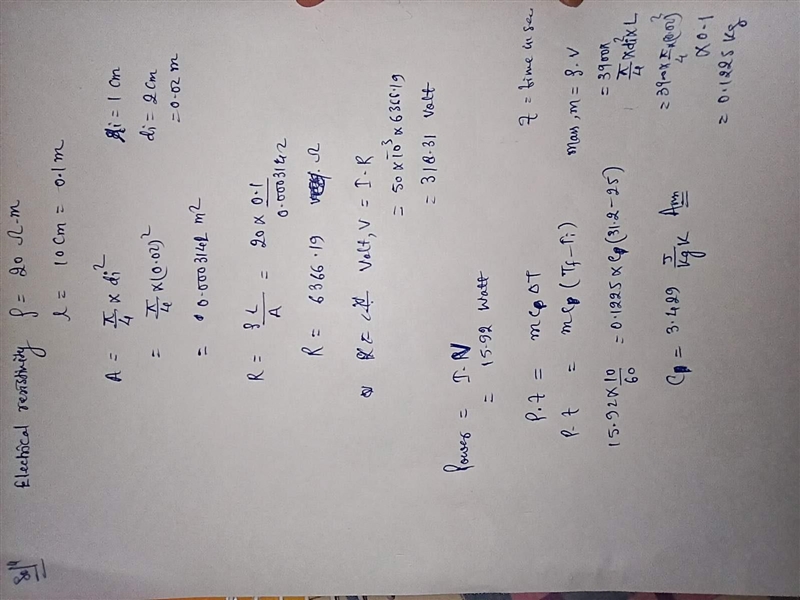 Solⁿ
Electrical resistivity ρ = 20 Ω-m
l = 10 cm = 0.1 m
A = π/4 × di²
= π/4 × (0.02)²
= 0.0003142 m²
ri = 1 cm
di = 2 cm
= 0.02 m
R = ρL/A = 20 × 0.1/0.0003142
R = 6366.19 Ω
Volt, V = I·R
= 50 × 10⁻³ × 6366.19
= 318.31 Volt
Power = I·V
= 15.92 Watt
P·t = m Cp ΔT
P·t = m Cp (Tf - Ti)
15.92 × 10/60 = 0.1225 × Cp (31.2 - 25)
Cp = 3.429 J/kg K Ans
t = time in sec
mass, m = ρ·V
= 3900 × π/4 × di² × L
= 3900 × π/4 × (0.02)² × 0.1
= 0.1225 kg